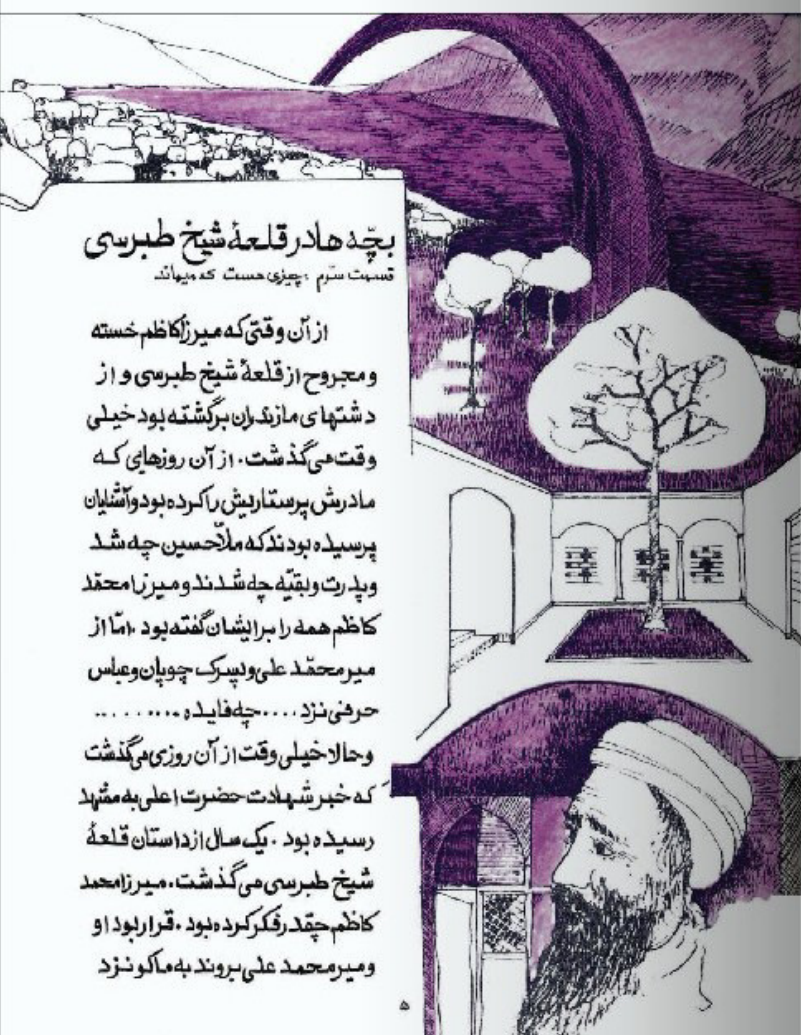 بچّه ها در قلعهٔ شیخ طبرسی
قسمت سوّم : چیزی هست که میماند
از آن وقتی که میرزاکاظم خسته
و مجروح از قلعهٔ شیخ طبرسی و از
دشتهای مازندران برگشته بود خیلی
وقت می‌گذشت . از آن روزهایی که
مادرش پرستاریش را کرده بود و آشنایان
پرسیده بودند که ملّاحسین چه شد
و پدرت و بقیّه چه شدند و میرزا محمّد
کاظم همه را برایشان گفته بود . امّا از
میر محمّد علی و پسرک چوپان و عباس
حرفی نزد .... چه فایده ........
و حالا خیلی وقت از آن روزی می‌گذشت
که خبر شهادت حضرت اعلی به مشهد
رسیده بود . یک سال از داستان قلعهٔ
شیخ طبرسی می‌گذشت . میرزا محمد
کاظم چقدر فکر کرده بود . قرار بود او
و میر محمد علی بروند به ماکو نزد
۵